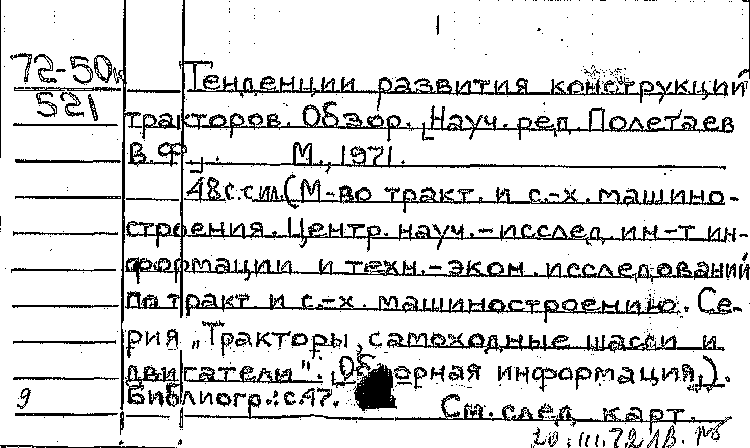 1
72-50к
521
Тенденции развития конструкций
тракторов. Обзор. [Науч. ред. Полетаев
В.Ф.]. М., 1971.
48 с. с ил. (М-во тракт. и с.-х. машино-
строения. Центр. науч.-исслед. ин-т ин-
формации и техн.-экон. исследований
по тракт. и с.-х. машиностроению. Се-
рия „Тракторы, самоходные шасси и
двигатели". [Обзорная информация]).
Библиогр.: с. 47.
См. след. карт.
9
20.III.72